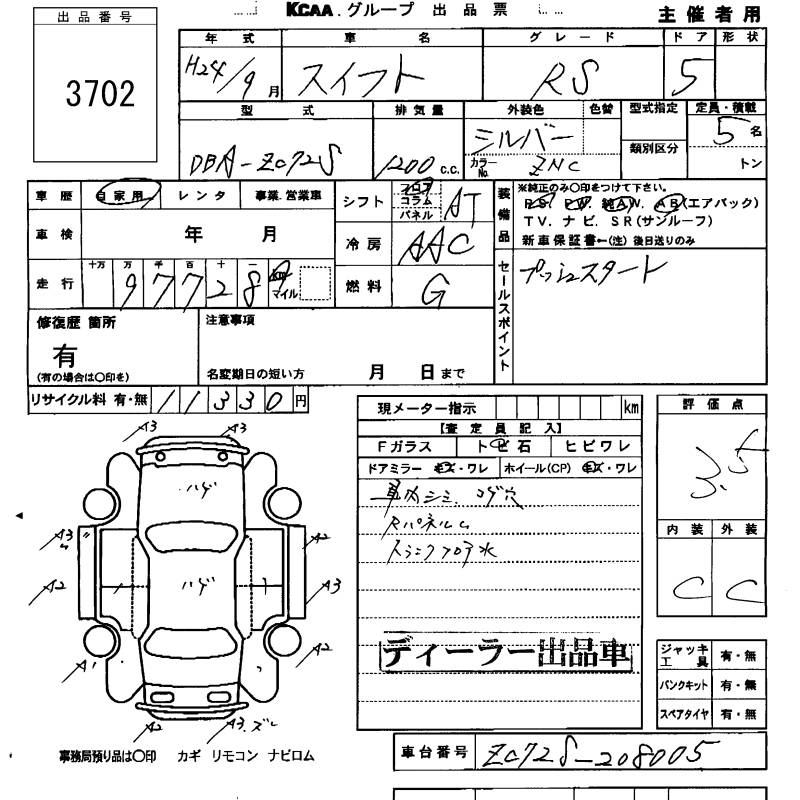 KCAA.グループ 出品票
主催者用
出品番号
3702
年式 車名 グレード ドア 形状
H24/9月 スイフト RS 5
型式 排気量 外装色 色替 型式指定 定員・積載
DBA-ZC72S 1200c.c. シルバー 5名
カラーNo. ZNC 類別区分 トン
車歴 自家用 レンタ 事業.営業車
シフト フロア コラム パネル AT
装備品 ※純正のみ○印をつけて下さい。
P.S. P.W. 純A.W. A.B(エアバック)
T.V. ナビ. S.R(サンルーフ)
新車保証書←(注)後日送りのみ
車検 年 月
冷房 AAC
走行 十万 万 千 百 十 一
97728 マイル
燃料 G
セールスポイント プッシュスタート
修復歴 箇所
有
(有の場合は○印を)
注意事項
名変期日の短い方 月 日まで
リサイクル料 有・無 11330円
現メーター指示 km
【査定員記入】
Fガラス トビ石 ヒビワレ
ドアミラー キズ・ワレ ホイール(CP) キズ・ワレ
車内シミ. コゲ穴
Rパネルム
トランクフロア水
ディーラー出品車
評価点
3.5
内装 外装
C C
A3 A3
ハゲ
A3 A2
A2 ハゲ A3
A2
A1
A2 A3.ズレ
ジャッキ工具 有・無
パンクキット 有・無
スペアタイヤ 有・無
事務局預り品は○印 カギ リモコン ナビロム
車台番号 ZC72S-208005